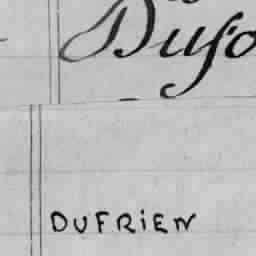 Dufo
DUFRiEN